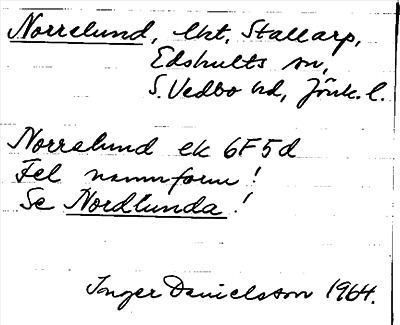 Norrelund, lht, Stallarp,
Edshults sn,
S. Vedbo hd, Jönk. l.
Norrelund ek 6F5d
Fel namnform!
Se Nordlunda!
Inger Danielsson 1964.